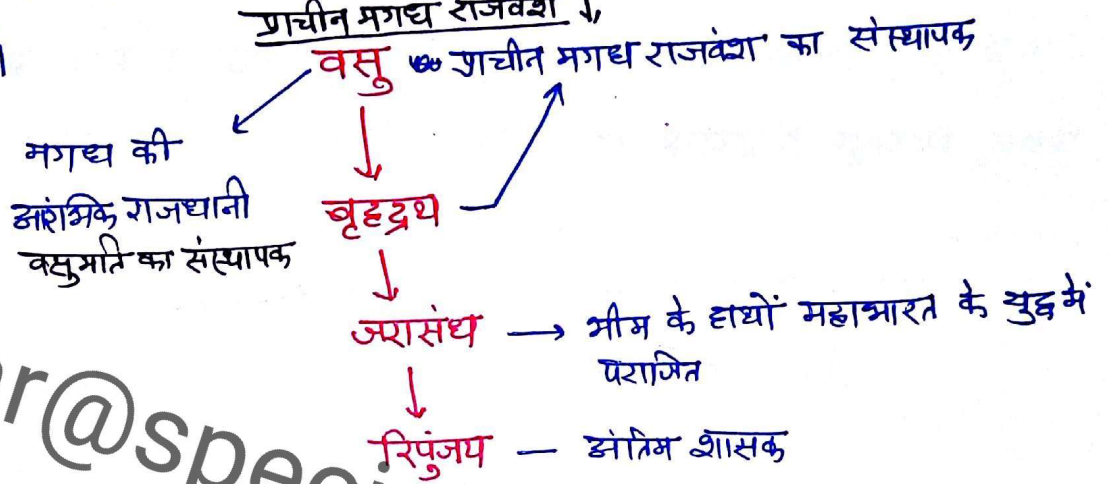 प्राचीन मगध राजवंश
वसु प्राचीन मगध राजवंश का संस्थापक
मगध की
आरंभिक राजधानी
वसुमति का संस्थापक
बृहद्रथ
जरासंध → भीम के हाथों महाभारत के युद्ध में
पराजित
रिपुंजय – अंतिम शासक
r@spe